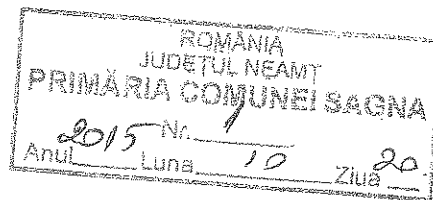 ROMÂNIA
JUDEŢUL NEAMŢ
PRIMĂRIA COMUNEI SAGNA
Nr. 1
Anul 2015 Luna 10 Ziua 20